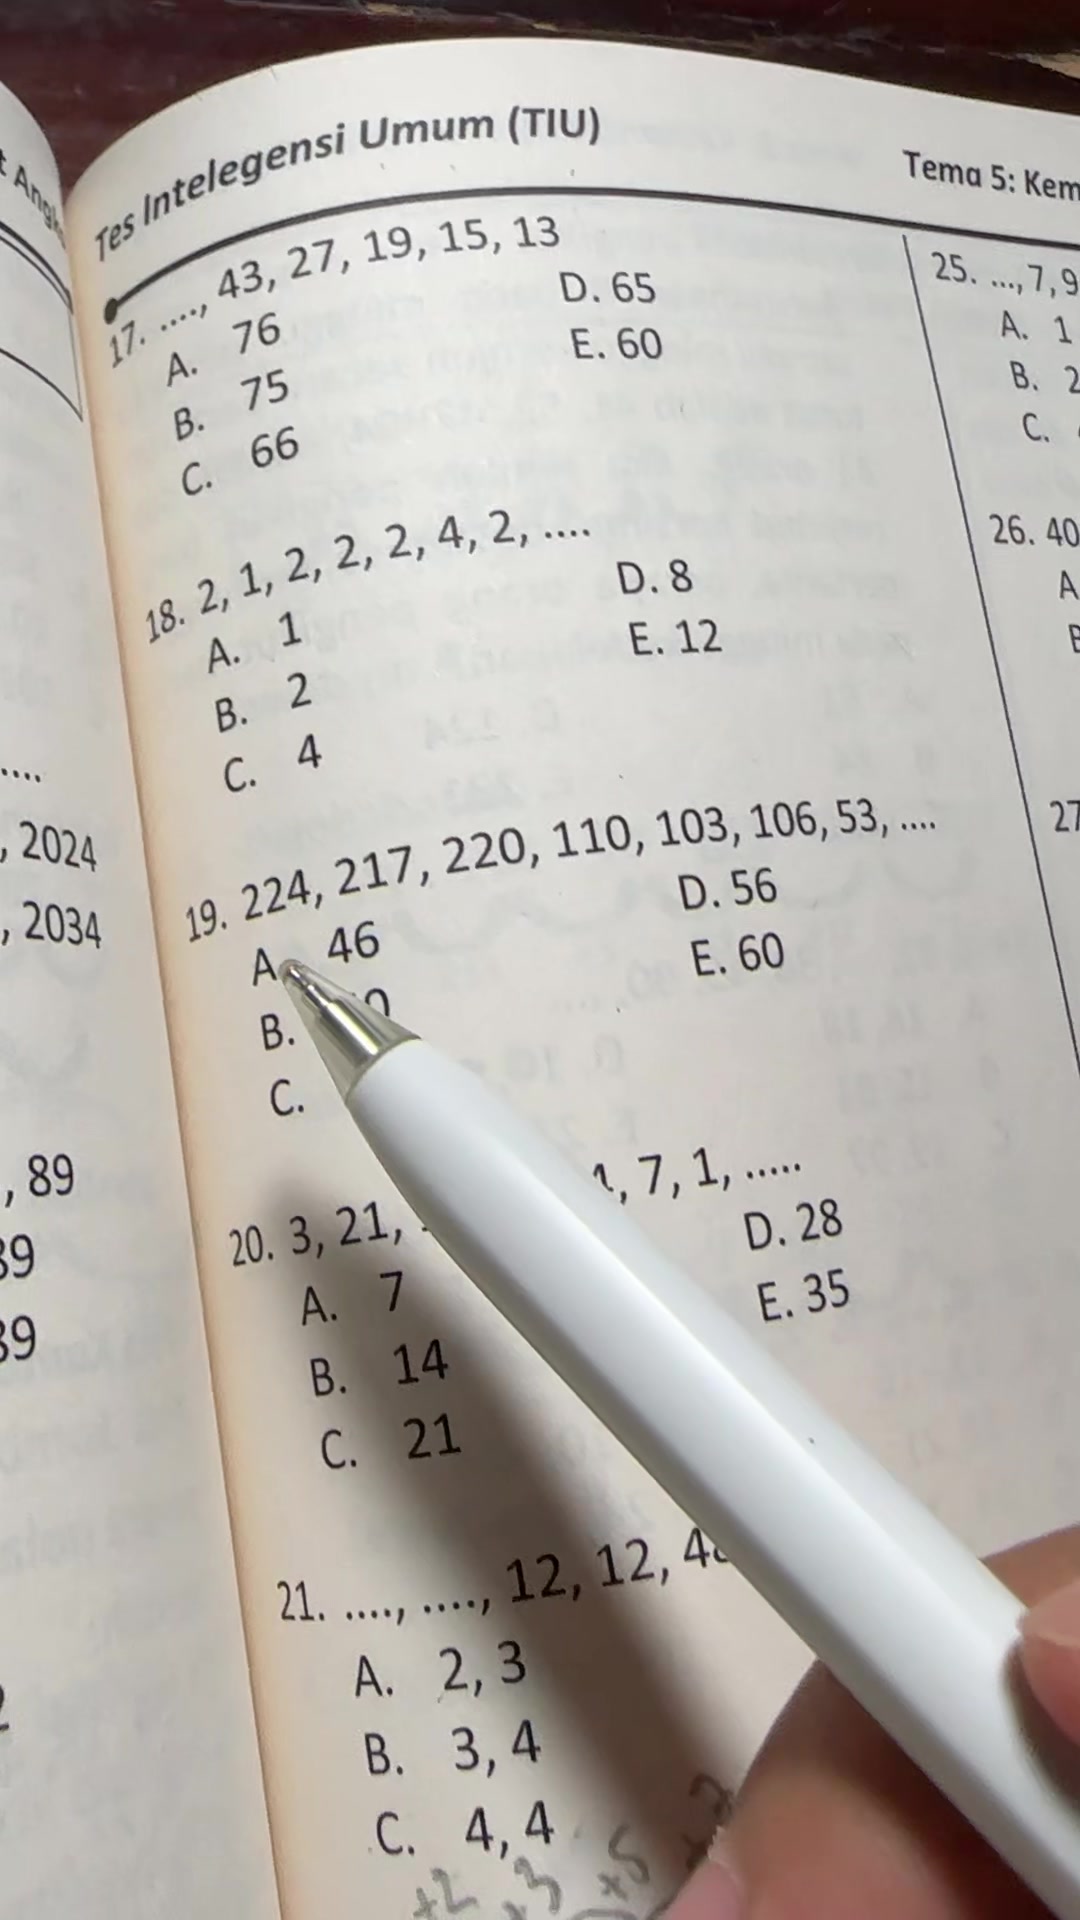 Tes Intelegensi Umum (TIU)
Tema 5:
17. ...., 43, 27, 19, 15, 13
A. 76
B. 75
C. 66
D. 65
E. 60
18. 2, 1, 2, 2, 2, 4, 2, ....
A. 1
B. 2
C. 4
D. 8
E. 12
19. 224, 217, 220, 110, 103, 106, 53, ....
A. 46
B.
C.
D. 56
E. 60
20. 3, 21, , 7, 1, .....
A. 7
B. 14
C. 21
D. 28
E. 35
21. ...., ...., 12, 12,
A. 2, 3
B. 3, 4
C. 4, 4
+2 ×3 ×5
25. ..., 7, 9
A. 1
B. 2
C.
26. 40
A
27
....
, 2024
, 2034
, 89
39
39